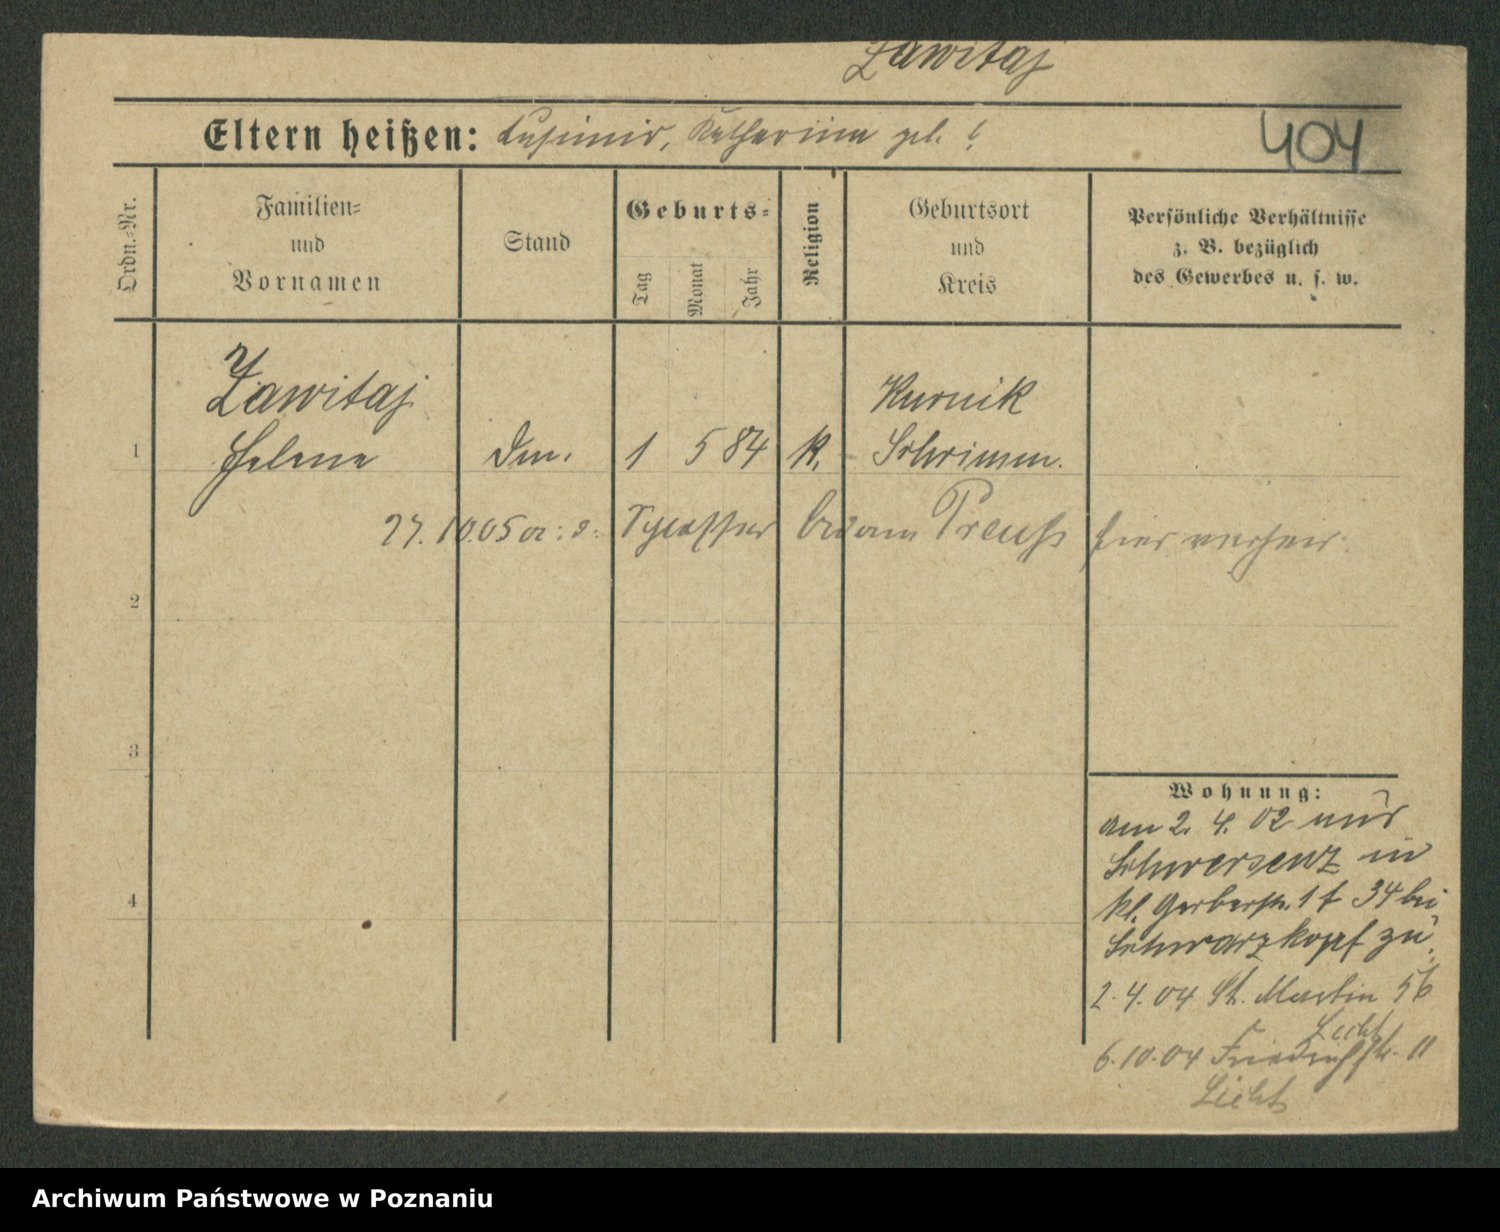 Zawitaj
Eltern heißen: Kasimir, Katharina geb. ?
404
Ordn.-Nr.
Familien-
und
Vornamen
Stand
Geburts-
Tag
Monat
Jahr
Religion
Geburtsort
und
Kreis
Persönliche Verhältnisse
z. B. bezüglich
des Gewerbes u. s. w.
Zawitaj
Kurnik
1 Helene Dm. 1 5 84 K. Schrimm.
27.10.05 a: d: Schlosser Adam Preuss hier verheir.
2
3
4
Wohnung:
am 2. 4. 02 aus
Schwersenz in
Kl. Gerberstr. 1 f 34 bei
Schwarzkopf zu.
2.4.04 St. Martin 56
Licht
6.10.04 Friedrichstr. 11
Licht
Archiwum Państwowe w Poznaniu